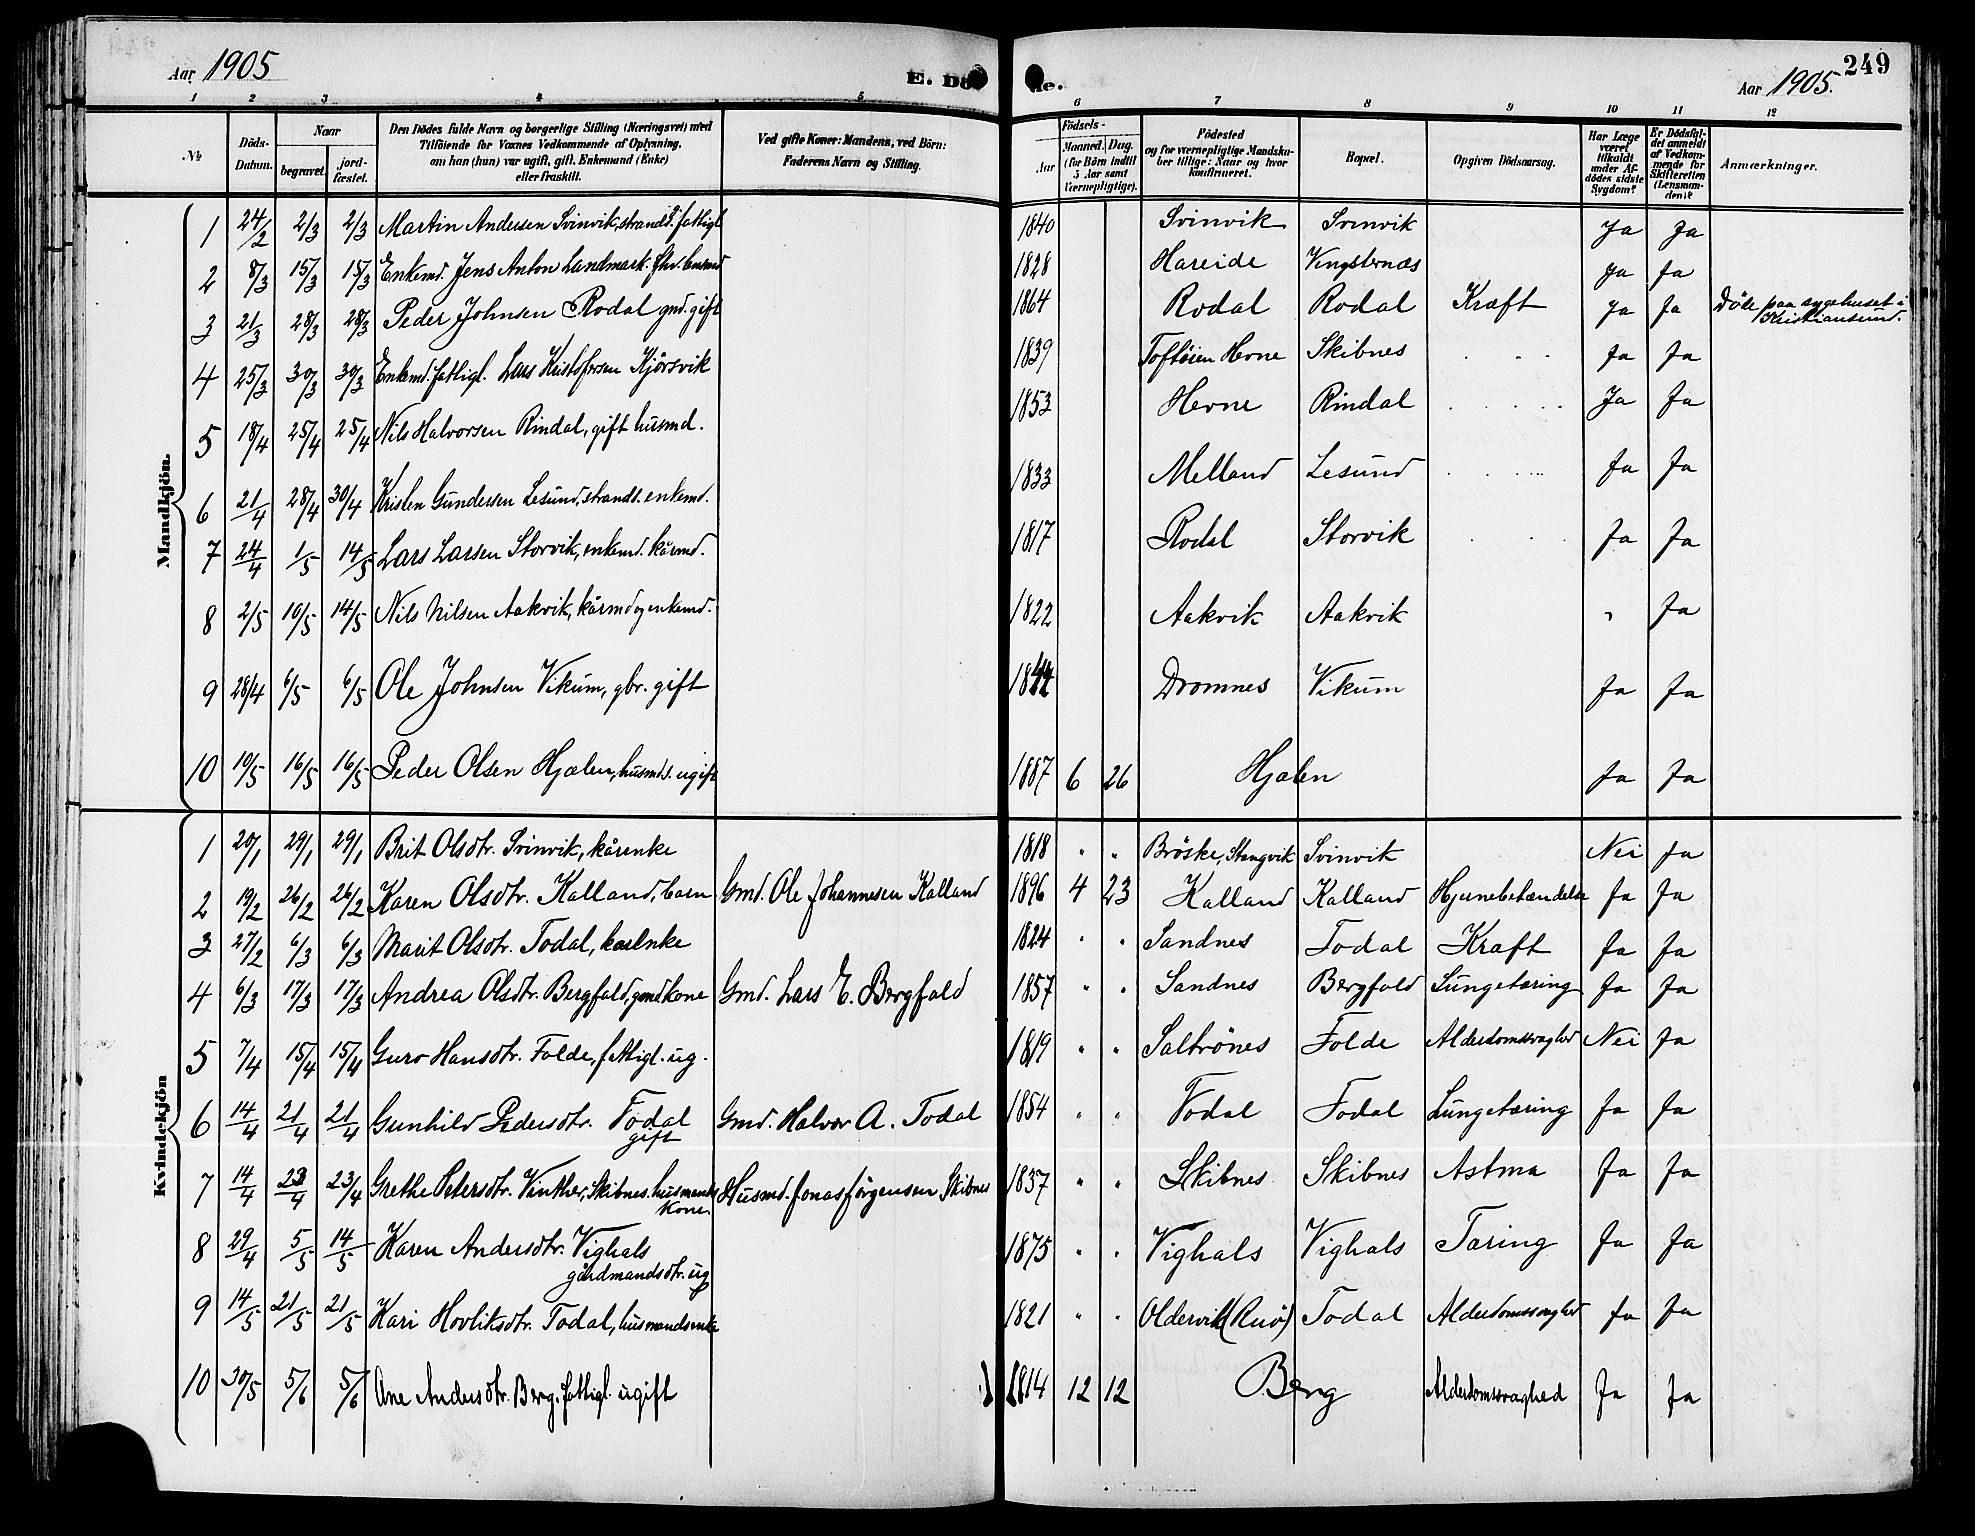 Aar 1905
E. Dø
de.
Aar 1905.
249
1 2 3 4 5 6 7 8 9 10 11 12
No.
Døds-Datum.
Naar
begravet.
jord-fæstet.
Den Dødes fulde Navn og borgerlige Stilling (Næringsvei) med
Tilføiende for Voxnes Vedkommende af Oplysning,
om han (hun) var ugift, gift, Enkemand (Enke)
eller fraskilt.
Ved gifte Koner: Mandens, ved Børn:
Faderens Navn og Stilling.
Fødsels-
Aar
Maaned. Dag.
(for Børn indtil
5 Aar samt
Værnepligtige).
Fødested
og for værnepligtige Mandskaber tillige: Naar og hvor
konfirmeret.
Bopæl.
Opgiven Dødsaarsag.
Har Læge været tilkaldt under Afdødes sidste Sygdom?
Er Dødsfaldet anmeldt af Vedkommende for Skifteretten (Lensmanden)?
Anmærkninger.
Mandkjøn.
1 24/2 2/3 2/3 Martin Andersen Svinvik, strands. fattigl 1840 Svinvik Svinvik Ja Ja
2 8/3 15/3 15/3 Enkemd. Jens Anton Landmark. fhv. lensmd 1828 Hareide Vingsternæs Ja Ja
3 21/3 28/3 28/3 Peder Johnsen Rodal gmd. gift 1864 Rodal Rodal Kræft Ja Ja Døde paa sygehuset i Kristiansund.
4 25/3 30/3 30/3 Enkemd. fattigl. Lars Kristofersen Kjørsvik 1839 Toftøien Hevne Skibnes . . . Ja Ja
5 18/4 25/4 25/4 Nils Halvorsen Rindal, gift husmd. 1853 Hevne Rindal . . . . . Ja Ja
6 21/4 28/4 30/4 Kristen Gundersen Lesund, strands. enkemd. 1833 Melland Lesund . . . . Ja Ja
7 24/4 1/5 14/5 Lars Larsen Storvik, enkemd. kårmd. 1817 Rodal Storvik . . . Ja Ja
8 2/5 10/5 14/5 Nils Nilsen Aakvik, kårmd og enkemd. 1822 Aakvik Aakvik " Ja
9 28/4 6/5 6/5 Ole Johnsen Vikum, gbr. gift Dromnes Vikum Ja Ja
10 10/5 16/5 16/5 Peder Olsen Hjælen, husmds. ugift 1887 6 26 Hjælen Ja Ja
Kvindekjøn
1 20/1 29/1 29/1 Brit Olsdtr. Svinvik, kårenke 1818 " " Brøske, Stangvik Svinvik Nei Ja
2 19/2 26/2 26/2 Karen Olsdtr. Kalland, barn Gmd. Ole Johannesen Kalland 1896 4 23 Kalland Kalland Hjernebetændelse Ja Ja
3 27/2 6/3 6/3 Marit Olsdtr. Todal, kårenke 1824 " " Sandnes Todal Kræft Ja Ja
4 6/3 17/3 17/3 Andrea Olsdtr. Bergfald, gmdkone Gmd. Lars E. Bergfald 1857 " " Sandnes Bergfald Lungetæring Ja Ja
5 7/4 15/4 15/4 Guro Hansdtr. Folde, fattigl. ug. 1819 " " Saltrønes Folde Alderdomssvaghed Nei Ja
6 14/4 21/4 21/4 Gunhild Pedersdtr. Todal gift Gmd. Halvor A. Todal 1854 " " Todal Todal Lungetæring Ja Ja
7 14/4 23/4 23/4 Grethe Petersdtr. Vinther, Skibnes. husmands kone. Husmd. Jonas Jørgensen Skibnes 1837 " " Skibnes Skibnes Astma Ja Ja
8 29/4 5/5 14/5 Karen Andersdtr. Vighals gårdmandsdtr. ug 1875 " " Vighals Vighals Tæring Ja Ja
9 14/5 21/5 21/5 Kari Hovliksdtr. Todal, husmandsenke 1821 " " Oldervik (Ruø) Todal Alderdomssvaghed Ja Ja
10 30/5 5/6 5/6 Ane Andersdtr. Berg. fattigl. ugift 1814 12 12 Berg Alderdomssvaghed Ja Ja